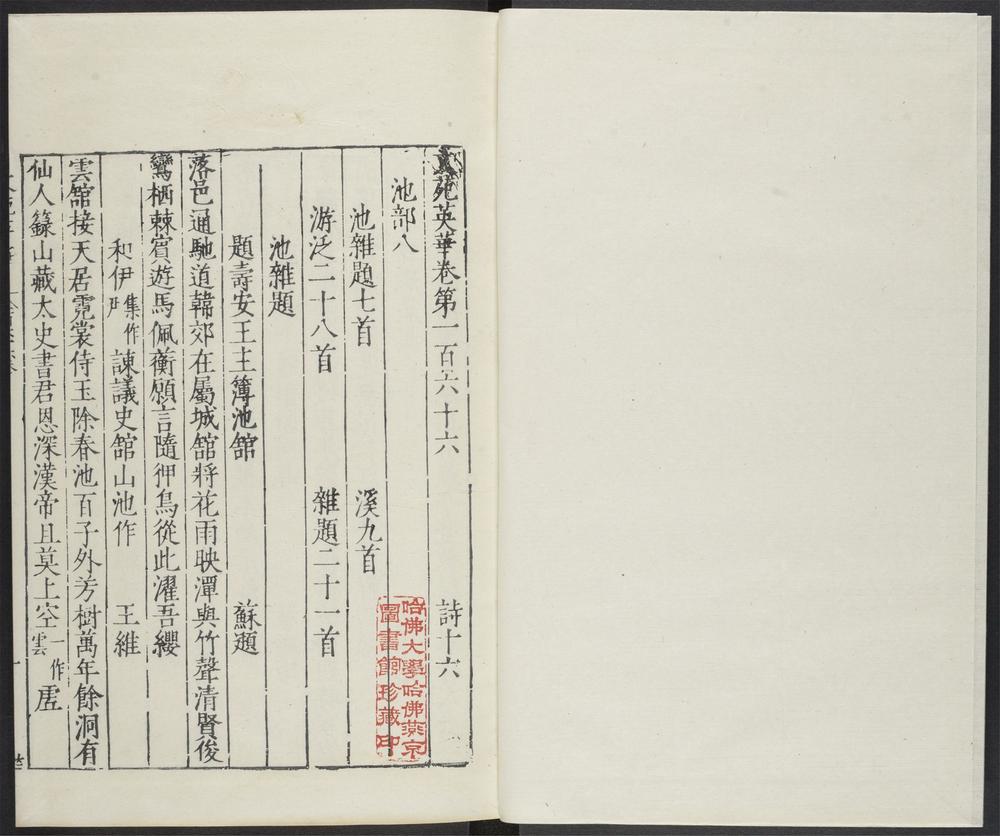 文苑英華卷第一百六十六 詩十六
池部八
池雜題七首 溪九首
游泛二十八首 雜題二十一首
池雜題
題壽安王主簿池館 蘇頲
落邑通馳道韓郊在屬城館將花雨映潭與竹聲清賢俊
鸞栖棘賓遊馬佩蘅願言隨狎鳥從此濯吾纓
和伊集作尹諫議史館山池作 王維
雲館接天居霓裳侍玉除春池百子外芳樹萬年餘洞有
仙人籙山藏太史書君恩深漢帝且莫上空一作雲虗
哈佛大學哈佛燕京
圖書館珍藏印